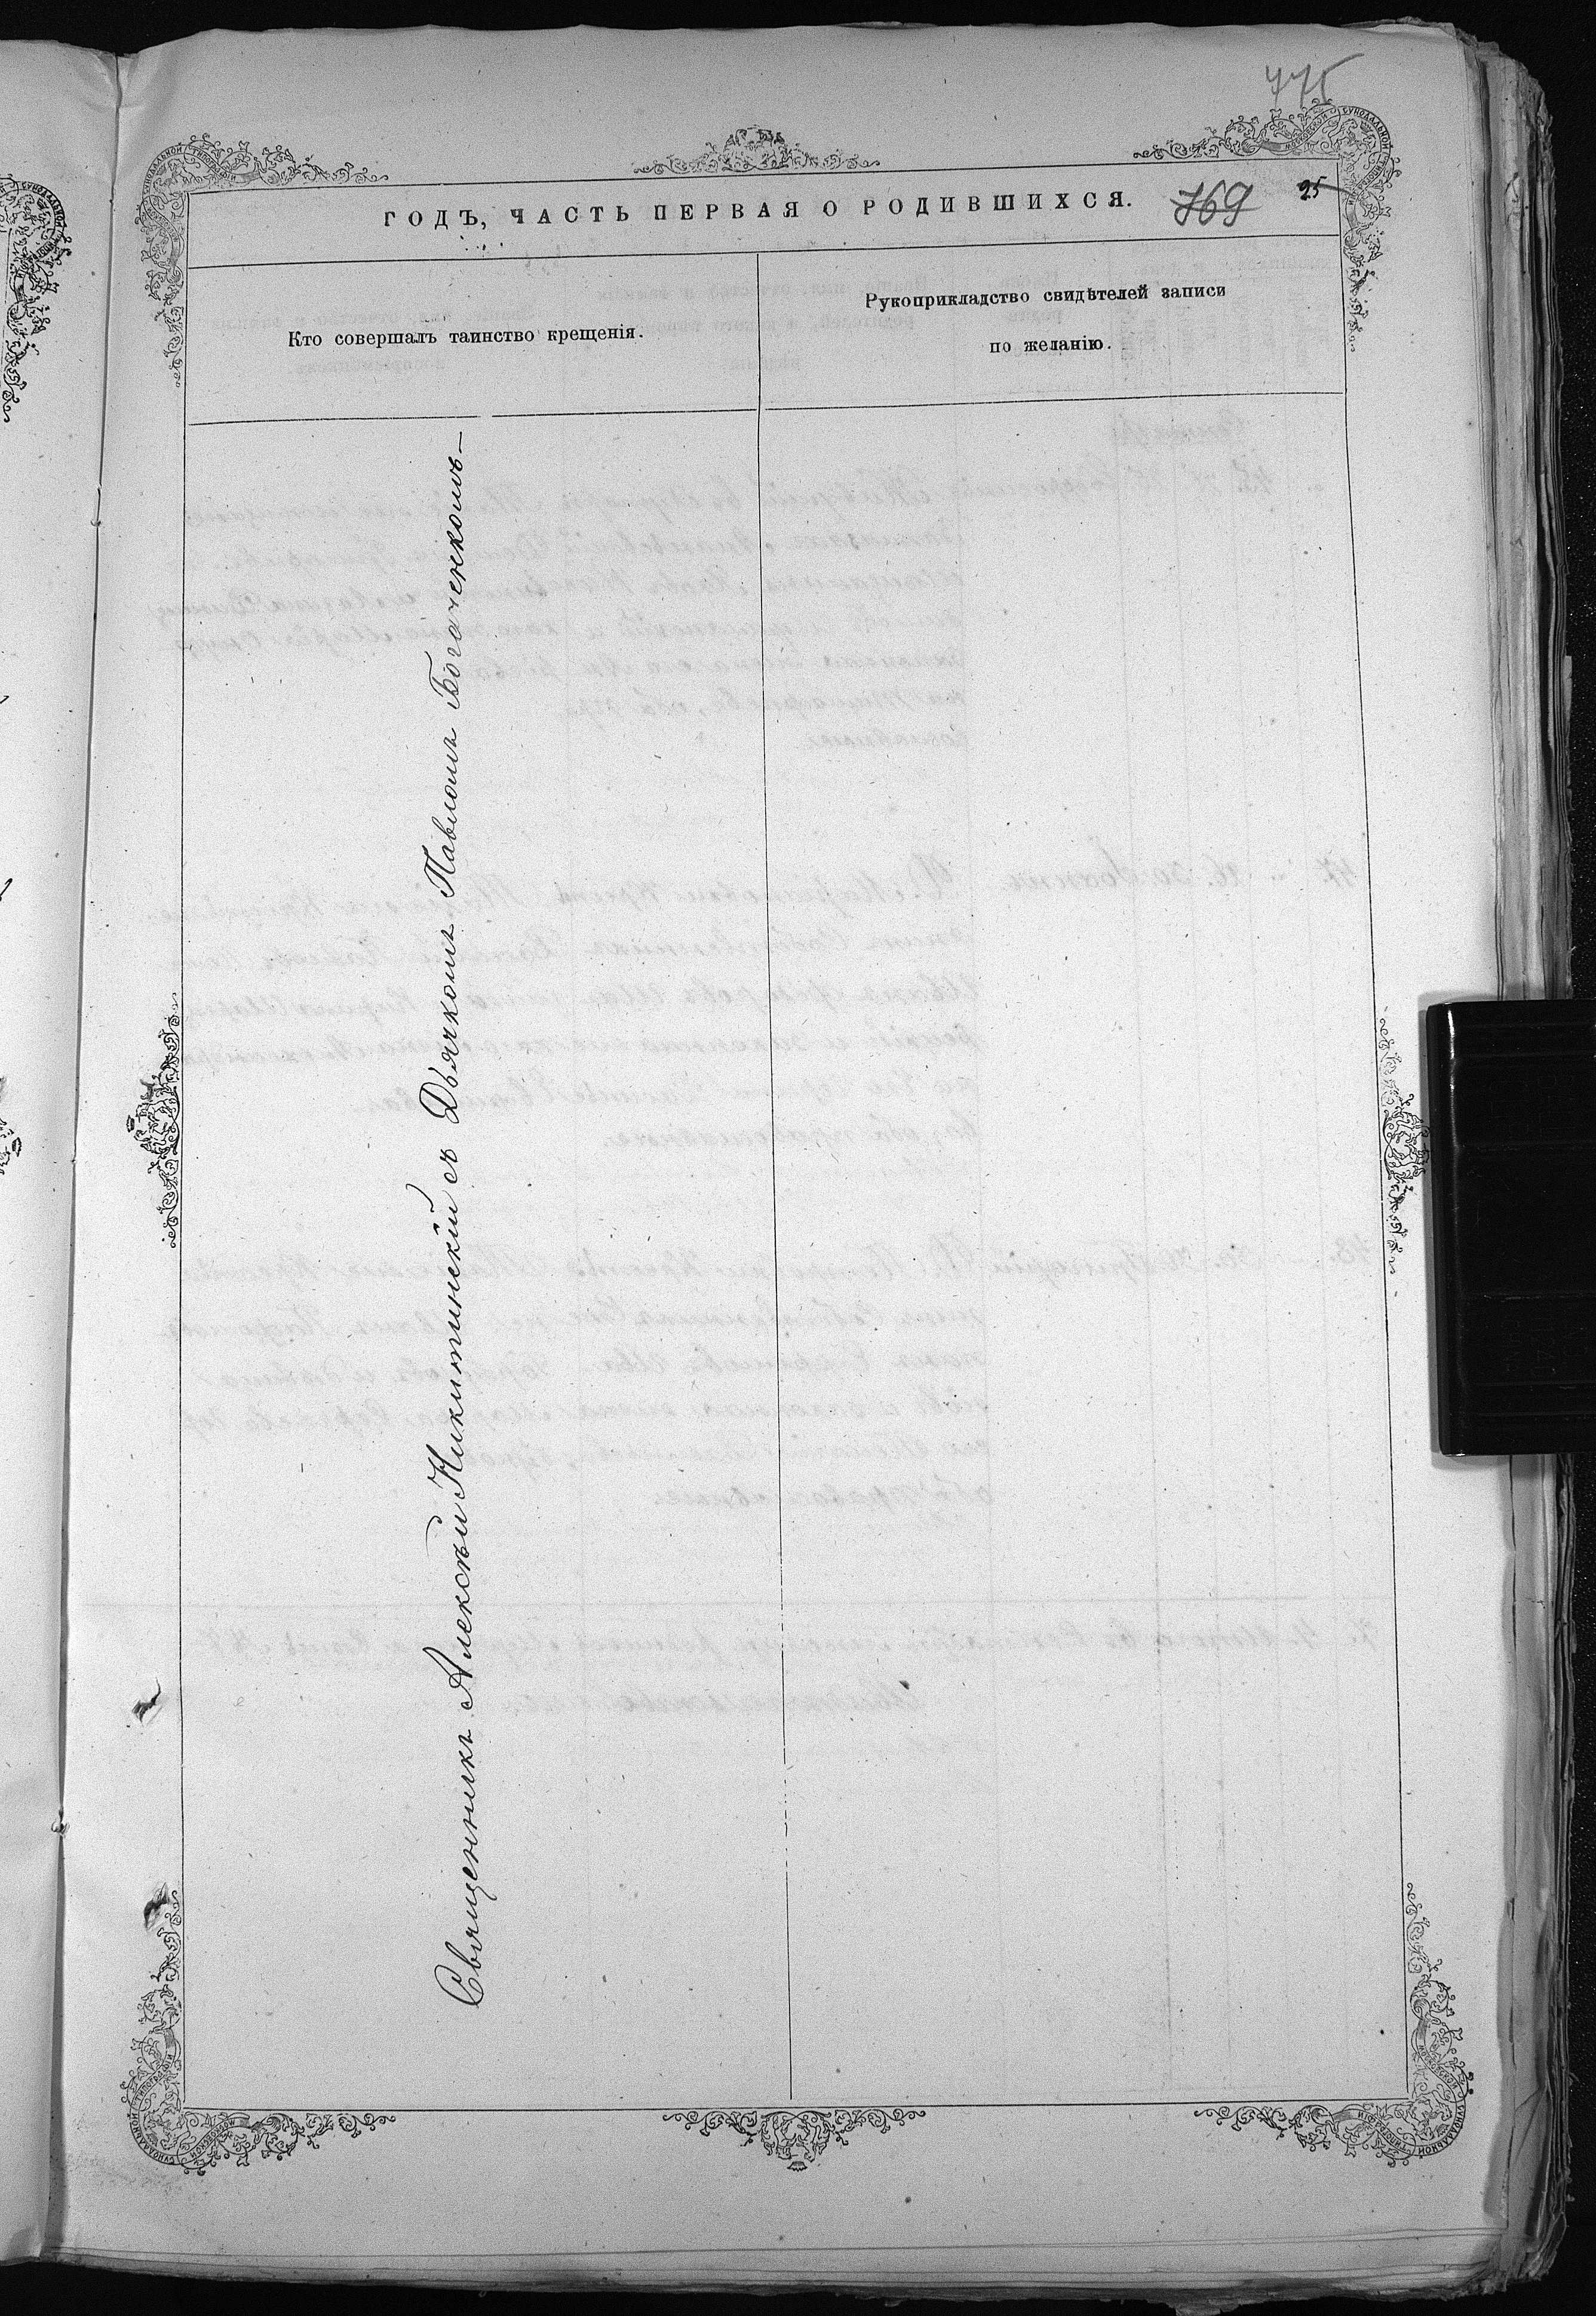 775
ГОДЪ, ЧАСТЬ ПЕРВАЯ О РОДИВШИХСЯ.
769
25
Кто совершалъ таинство крещенія.
Рукоприкладство свидѣтелей записи
по желанію.
Священникъ Алексѣй Никитинскій съ Дьячкомъ Павломъ Богаченкомъ—